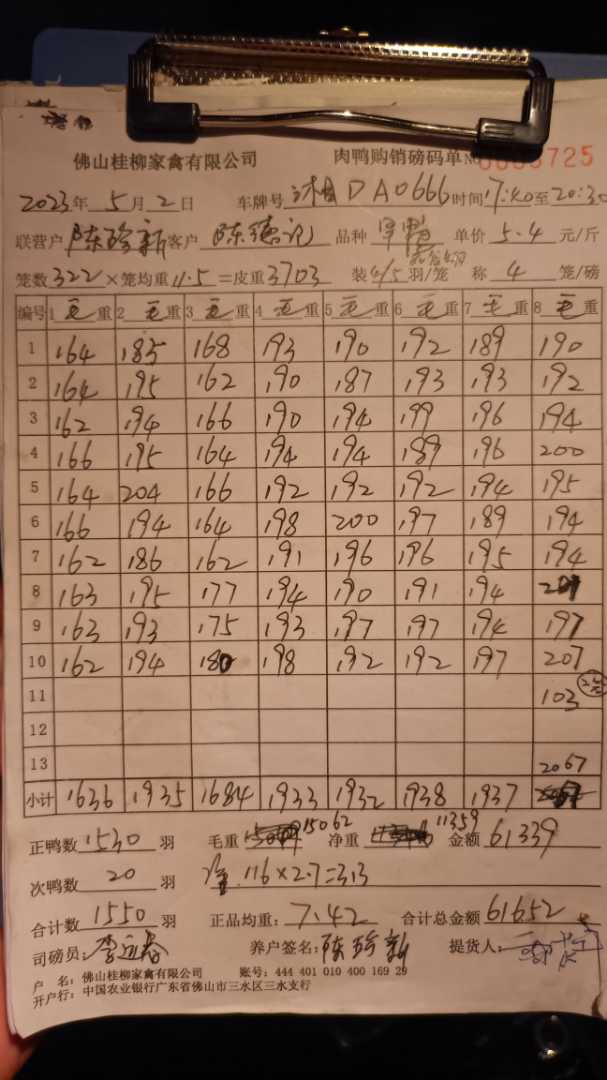 佛山桂柳家禽有限公司 肉鸭购销磅码单 No 725
2023年5月2日 车牌号 湘DA0666 时间 17:40至20:30
联营户 陈珍新 客户 陈德记 品种 旱鸭 单价 5.4 元/斤
笼数 322 ×笼均重 11.5 =皮重 3703 装 4/5 羽/笼 称 4 笼/磅
编号 1 毛重 2 毛重 3 毛重 4 毛重 5 毛重 6 毛重 7 毛重 8 毛重
1 164 185 168 193 190 192 189 190
2 164 195 162 190 187 193 193 192
3 162 194 166 190 194 199 196 194
4 166 195 164 194 194 189 196 200
5 164 204 166 192 192 192 194 195
6 166 194 164 198 200 197 189 194
7 162 186 162 191 196 196 195 194
8 163 195 177 194 190 191 194
9 163 193 175 193 197 197 194 197
10 162 194 180 198 192 192 197 207
11 103
12
13 2067
小计 1636 1935 1684 1933 1932 1938 1937
正鸭数 1530 羽 毛重 15062 净重 11359 金额 61339
次鸭数 20 羽 116×2.7=313
合计数 1550 羽 正品均重: 7.42 合计总金额 61652
司磅员: 李运春 养户签名: 陈珍新 提货人:
户 名: 佛山桂柳家禽有限公司 账号: 444 401 010 400 169 29
开户行: 中国农业银行广东省佛山市三水区三水支行